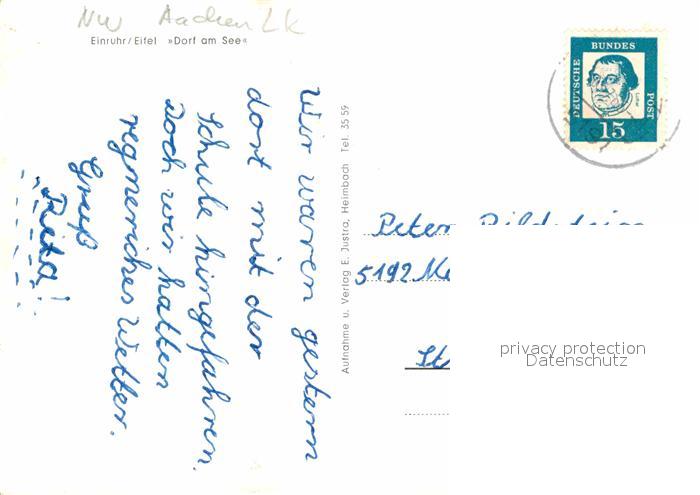 NW Aachen LK
Einruhr/Eifel »Dorf am See«
Wir waren gestern
dort mit der
Schule hingefahren.
Doch wir hatten
regneriches Wetter.
Gruß
Rita!
Aufnahme u. Verlag E. Justra, Heimbach Tel. 35 59
DEUTSCHE
BUNDES
POST
Luther
15
Peter
5192
privacy protection
Datenschutz